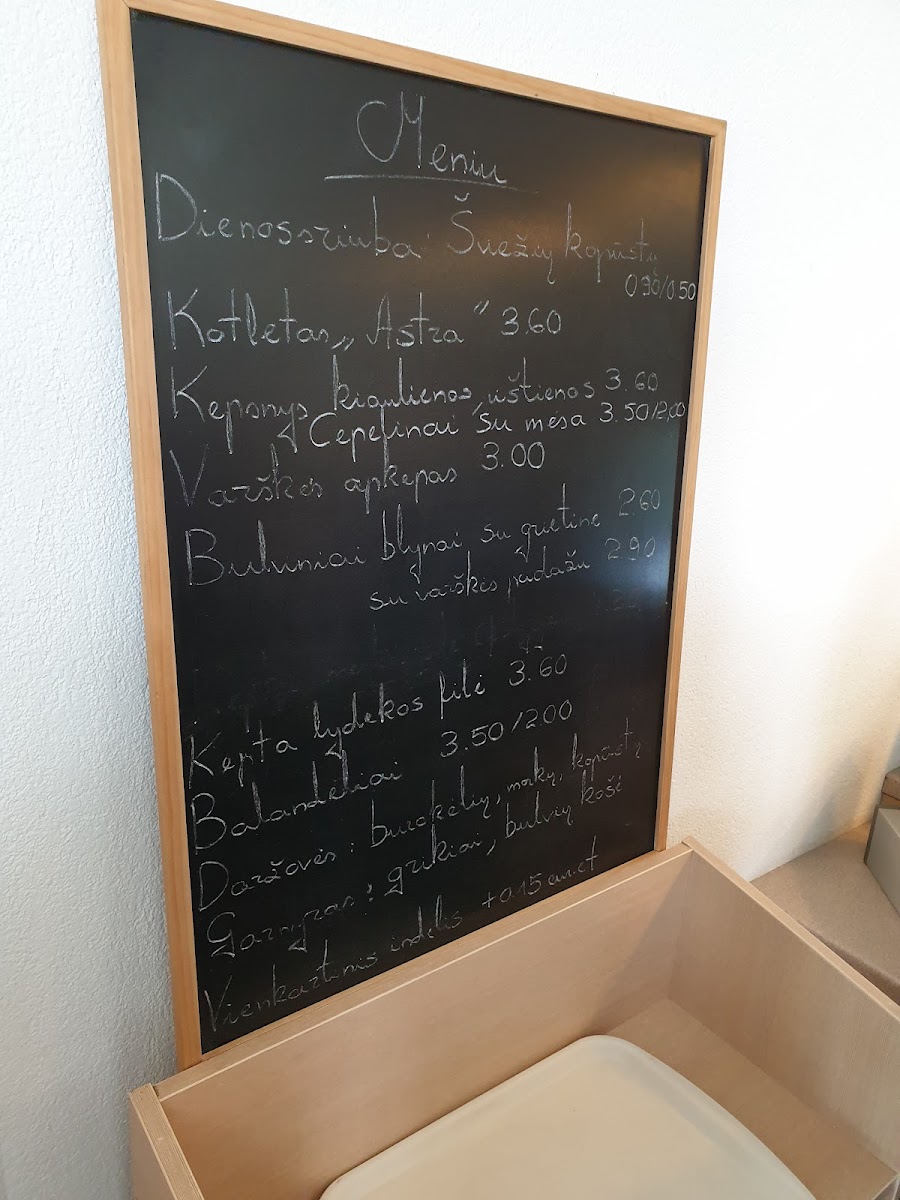 Meniu
Dienos sriuba Šviežių kopūstų
0.90/0.50
Kotletas „Astra" 3.60
Kepsnys kiaulienos, vištienos 3.60
Cepelinai su mėsa 3.50/2,00
Varškės apkepas 3.00
Bulviniai blynai su grietine 2.60
su varškės padažu 2.90
Kepta lydekos filė 3.60
Balandėliai 3.50/2.00
Daržovės: burokėlių, morkų, kopūstų
Garnyras: grikiai, bulvių košė
Vienkartinis indelis +0.15 eur.ct